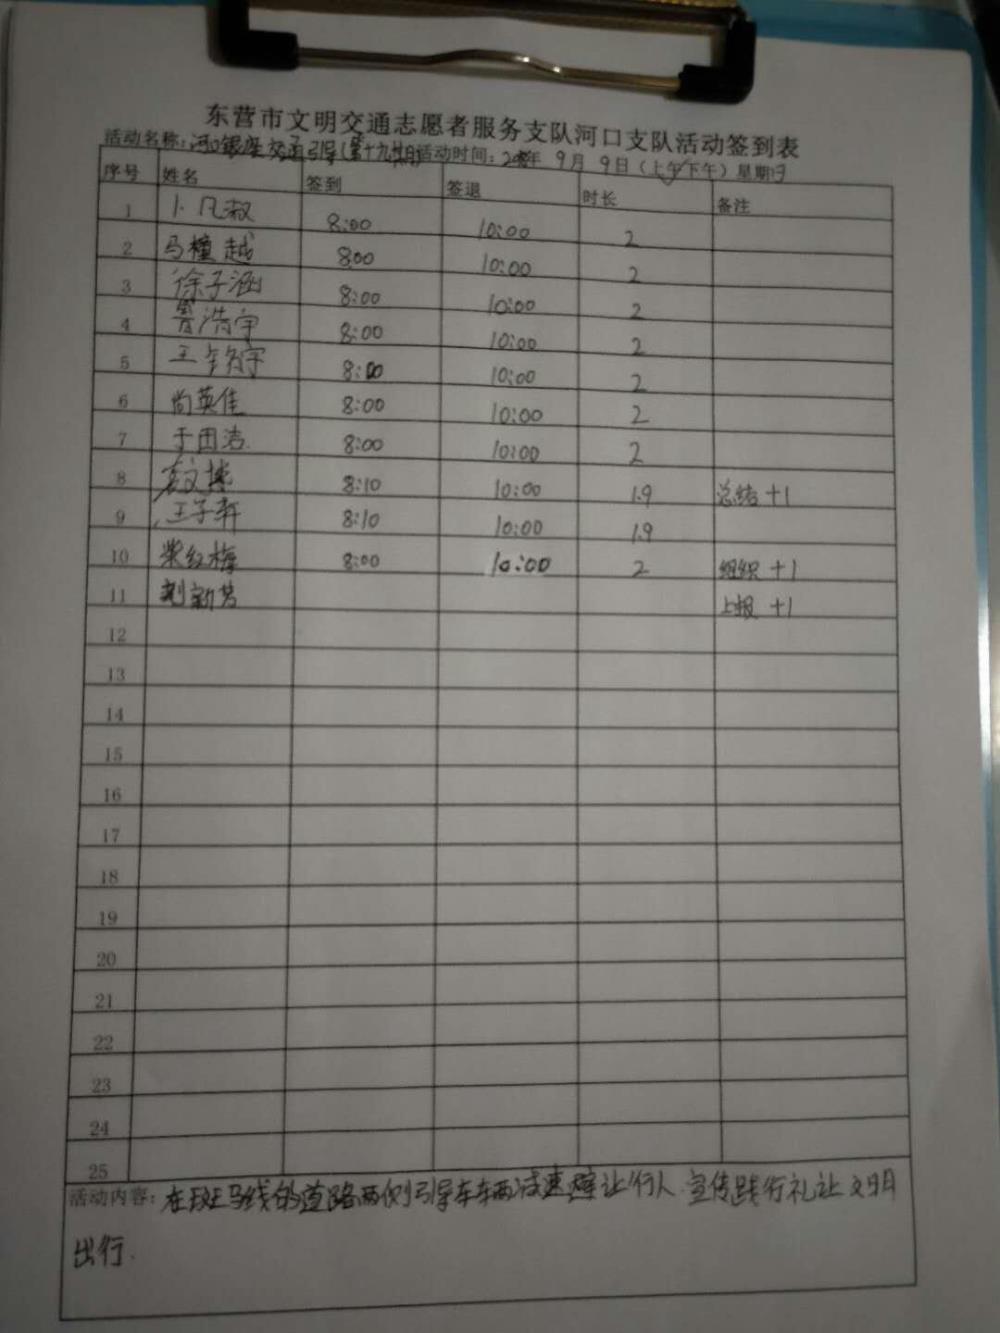 东营市文明交通志愿者服务支队河口支队活动签到表
活动名称:河口银座交通引导(第十九期)活动时间: 年 9月 9日(上午/下午)星期日
序号 姓名 签到 签退 时长 备注
1 卜凡淑 8:00 10:00 2
2 马橦越 8:00 10:00 2
3 徐子涵 8:00 10:00 2
4 浩宇 8:00 10:00 2
5 王 宇 8:00 10:00 2
6 尚英佳 8:00 10:00 2
7 于田洁 8:00 10:00 2
8 袁文 8:10 10:00 1.9 总结 +1
9 王子轩 8:10 10:00 1.9
10 荣红梅 8:00 10:00 2 组织 +1
11 刘新芳 上报 +1
12
13
14
15
16
17
18
19
20
21
22
23
24
25
活动内容:在斑马线的道路两侧引导车辆减速 让行人.宣传践行礼让文明
出行.